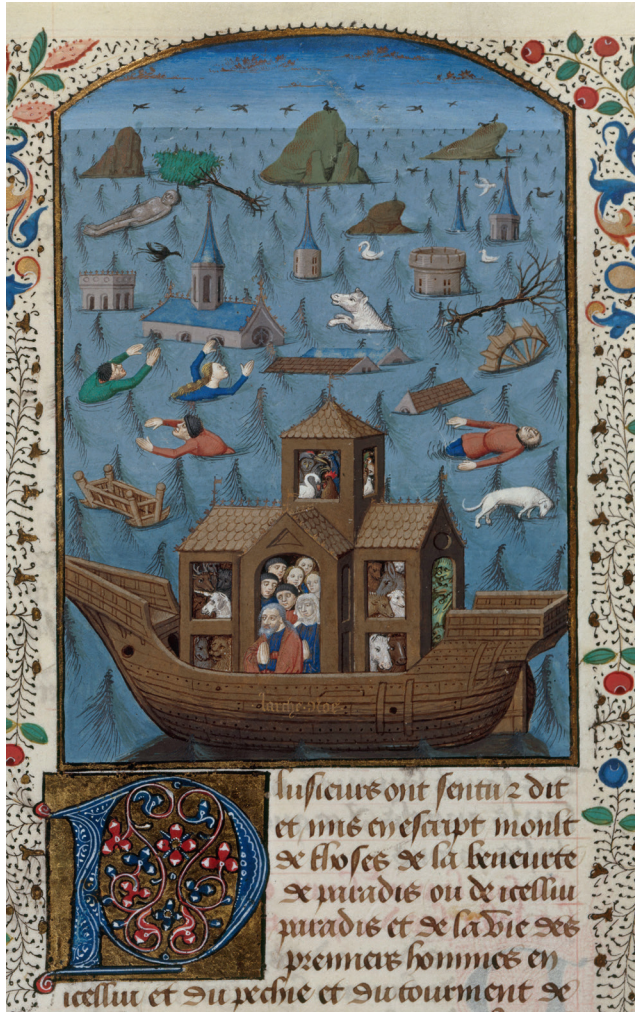 larche Noe
Plusieurs ont sentu ⁊ dit
et mis en escript moult
de choses de la beneurte
de paradis ou de icellui
paradis et de la vie des
premiers hommes en
icellui et du pechie et du tourment de